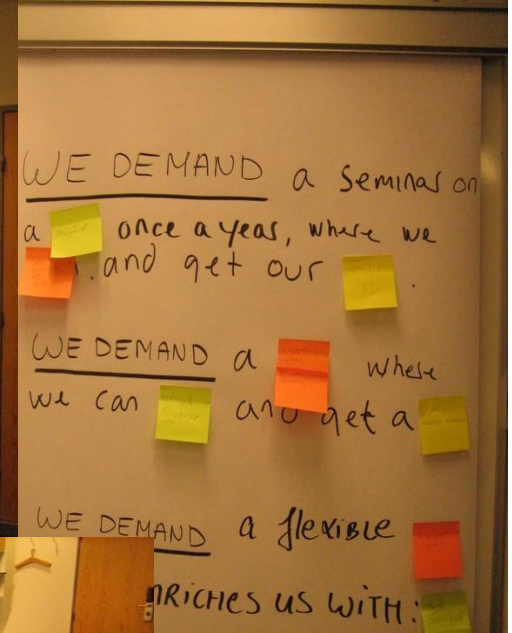 WE DEMAND a seminar on
a once a year, where we
and get our .
WE DEMAND a where
we can and get a
WE DEMAND a flexible
NRICHES US WITH: